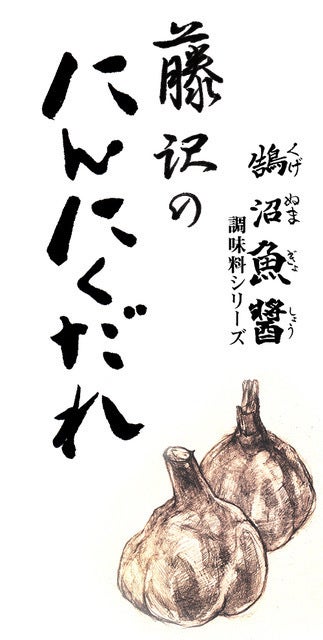 鵠沼魚醬
くげぬまぎょしょう
調味料シリーズ
藤沢の
にんにくだれ